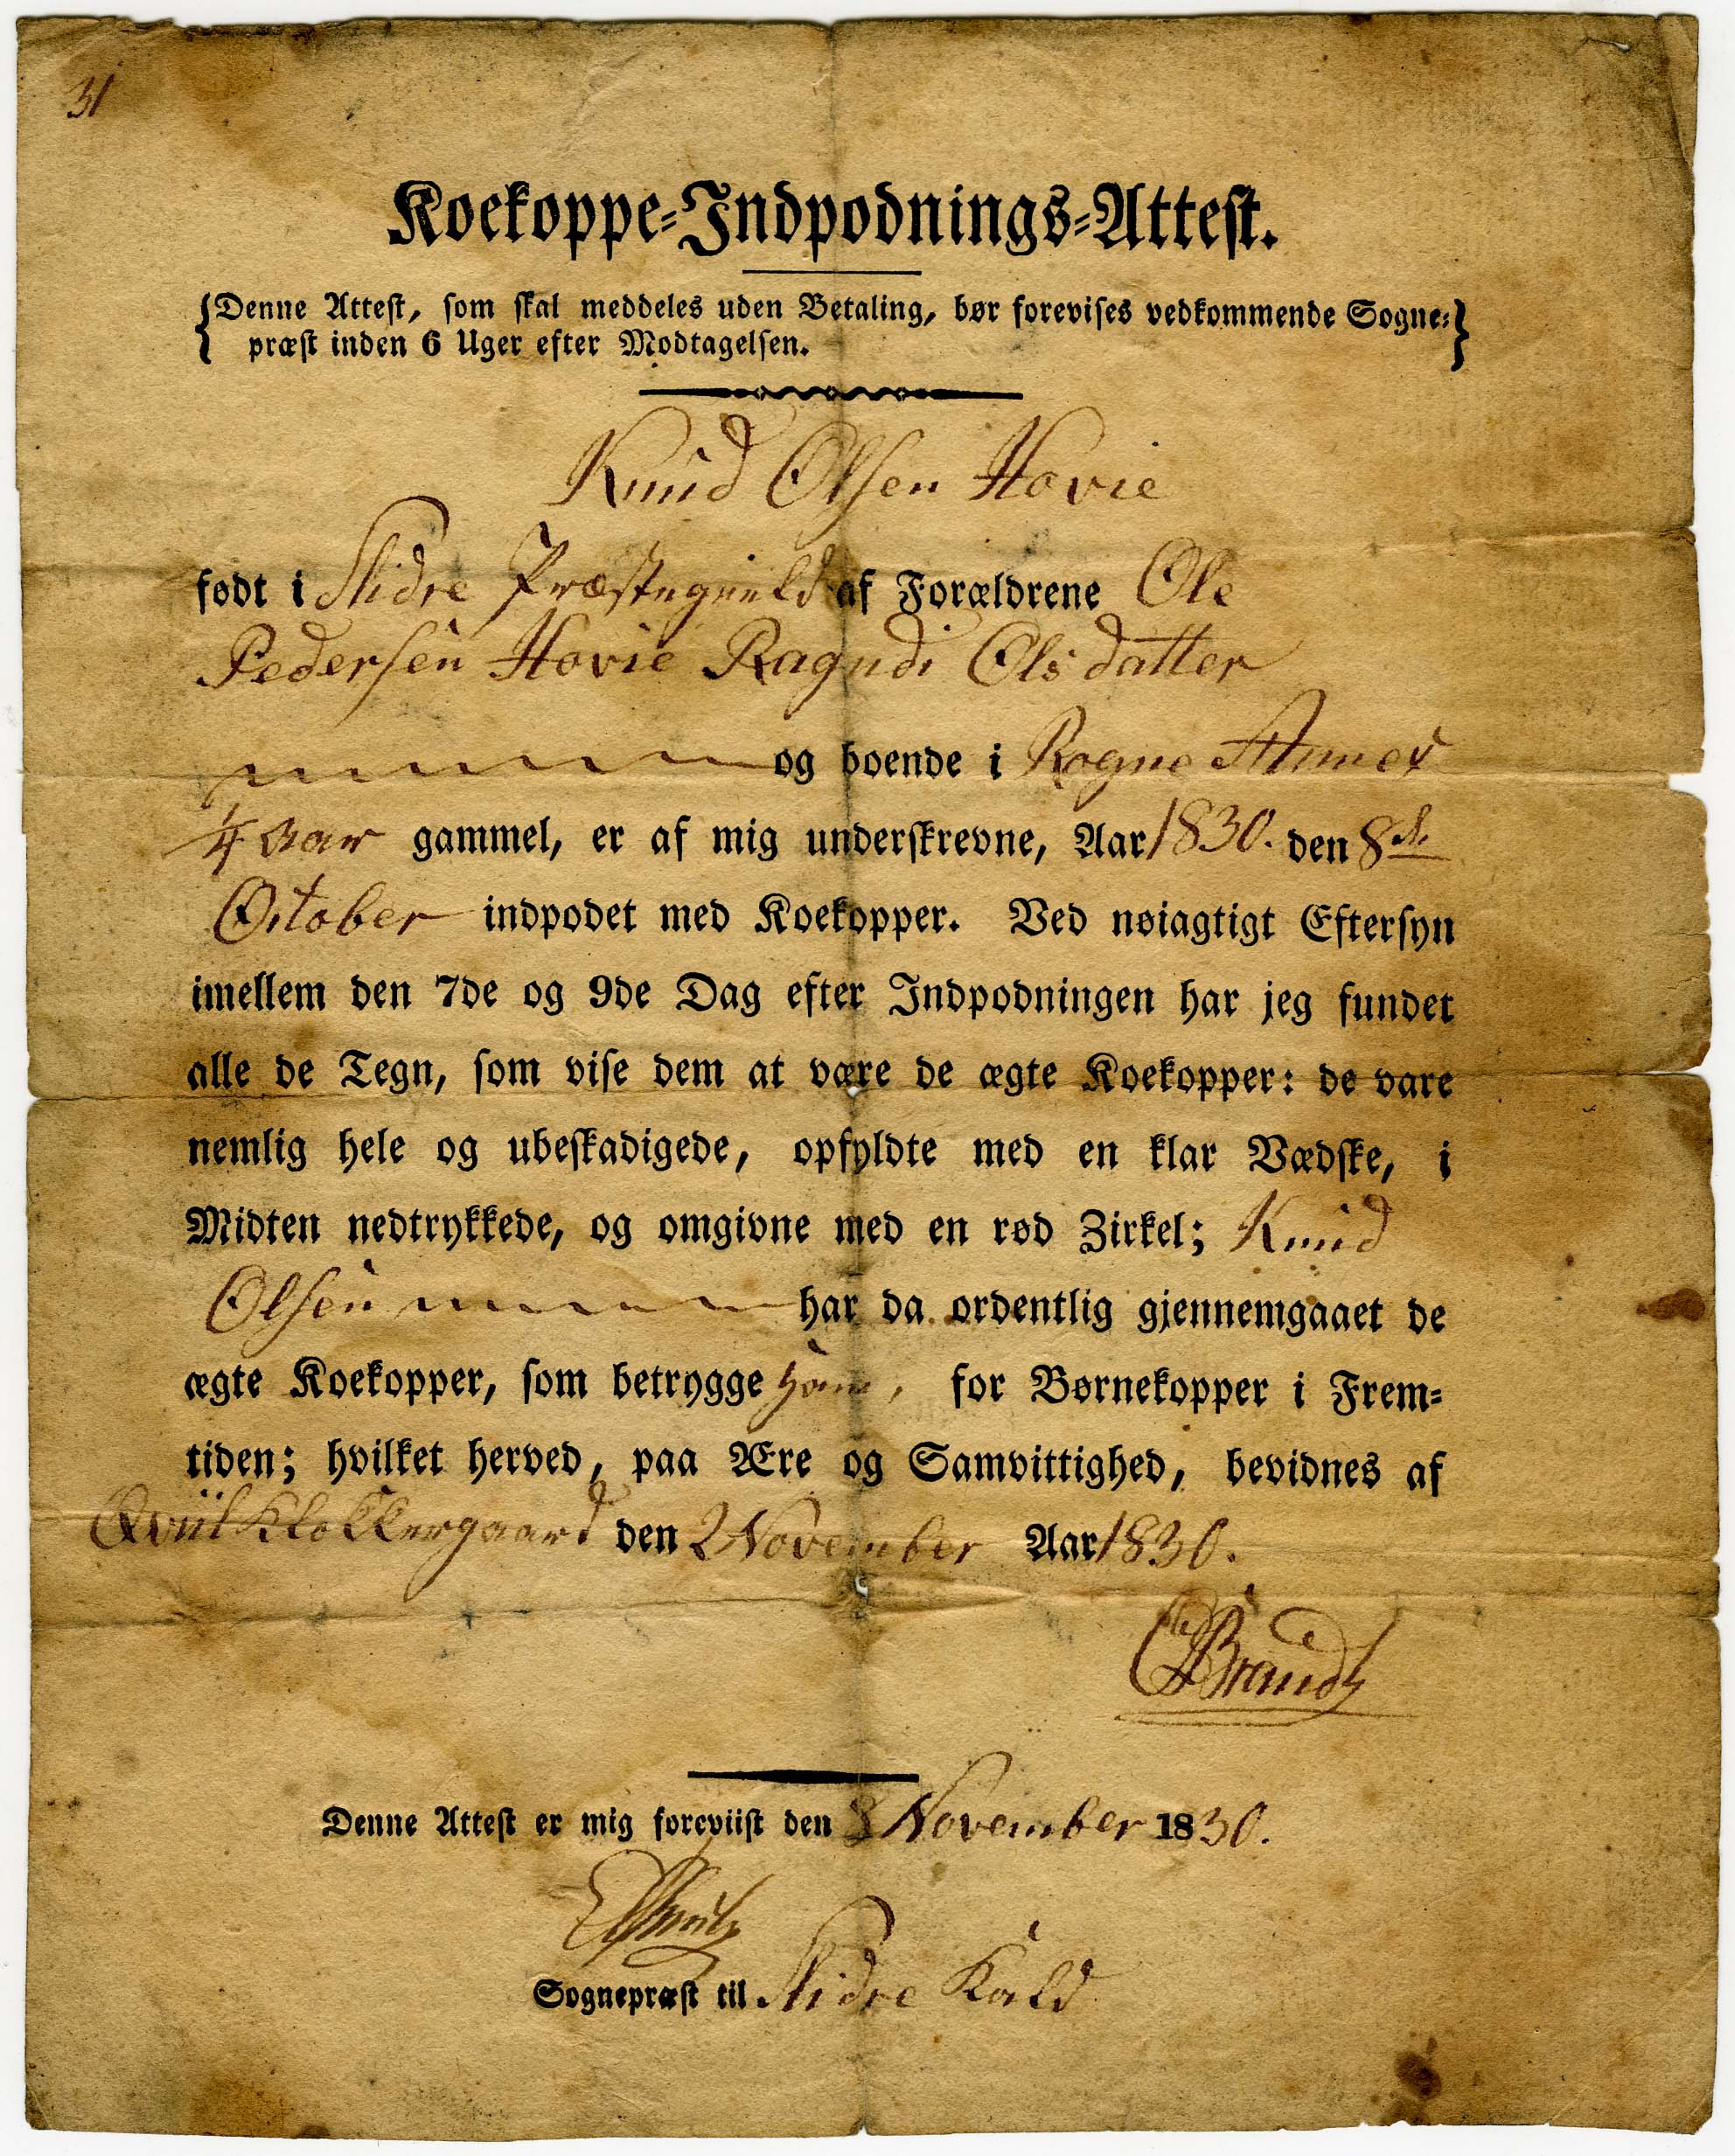 31
Koekoppe-Indpodnings-Attest.
{Denne Attest, som skal meddeles uden Betaling, bør forevises vedkommende Sogne-}
præst inden 6 Uger efter Modtagelsen.
Knud Olsen Hovie
født i Slidre Præstegield af Forældrene Ole
Pedersen Hovie Ragndi Olsdatter
og boende i Rogne Annex
1/4 Aar gammel, er af mig underskrevne, Aar 1830. den 8de
October indpodet med Koekopper. Ved nøiagtigt Eftersyn
imellem den 7de og 9de Dag efter Indpodningen har jeg fundet
alle de Tegn, som vise dem at være de ægte Koekopper: de vare
nemlig hele og ubeskadigede, opfyldte med en klar Vædske, i
Midten nedtrykkede, og omgivne med en rød Zirkel; Knud
Olsen har da ordentlig gjennemgaaet de
ægte Koekopper, som betrygge ham, for Børnekopper i Frem-
tiden; hvilket herved, paa Ære og Samvittighed, bevidnes af
Qviil Klokkergaard den 2 November Aar 1830.
Brandt
Denne Attest er mig foreviist den 8 November 1830.
Sognepræst til Slidre Kald